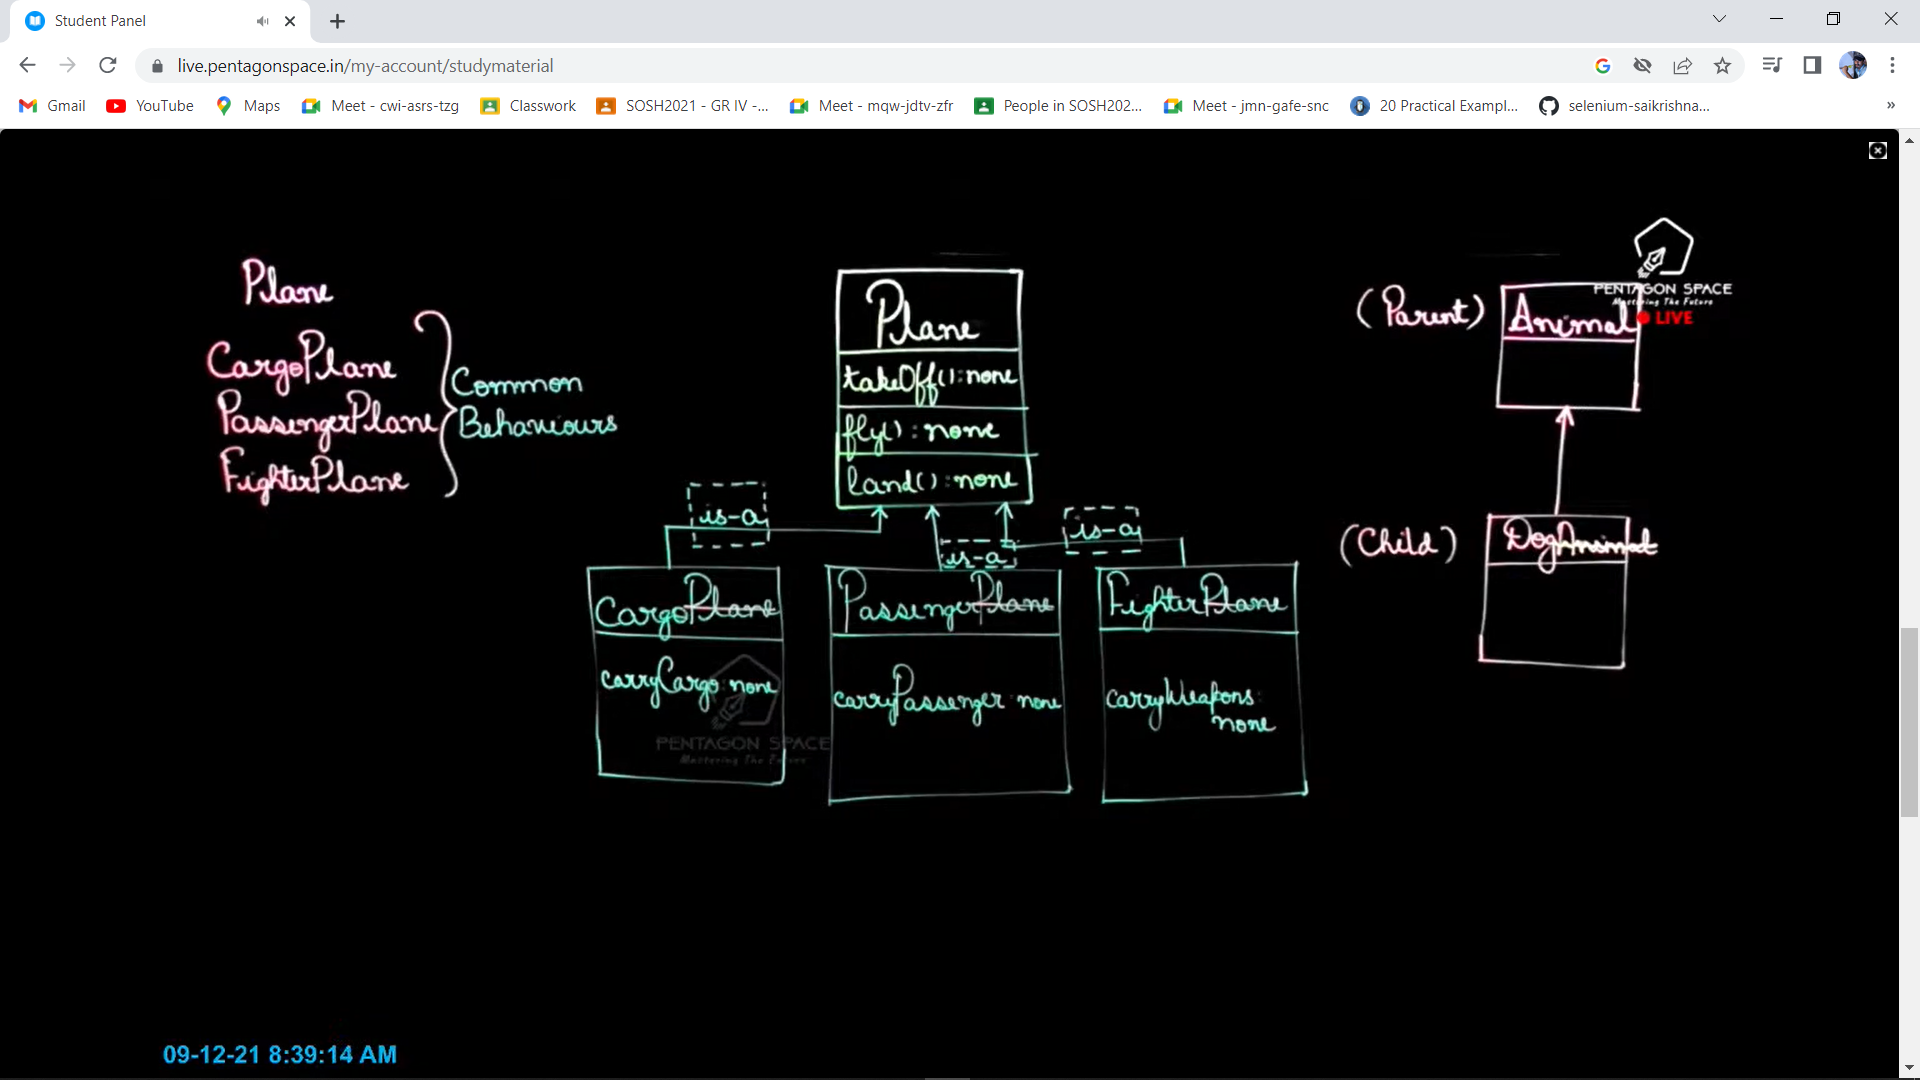 Student Panel
live.pentagonspace.in/my-account/studymaterial
Gmail
YouTube
Maps
Meet - cwi-asrs-tzg
Classwork
SOSH2021 - GR IV -...
Meet - mqw-jdtv-zfr
People in SOSH202...
Meet - jmn-gafe-snc
20 Practical Exampl...
selenium-saikrishna...
»
Plane
CargoPlane
PassengerPlane
FighterPlane
Common
Behaviours
Plane
takeOff() : none
fly() : none
land() : none
is-a
is-a
is-a
CargoPlane
carryCargo : none
PassengerPlane
carryPassenger : none
FighterPlane
carryWeapons :
none
PENTAGON SPACE
Mastering The Future
(Parent)
Animal
PENTAGON SPACE
Mastering The Future
LIVE
(Child)
DogAnimal
09-12-21 8:39:14 AM